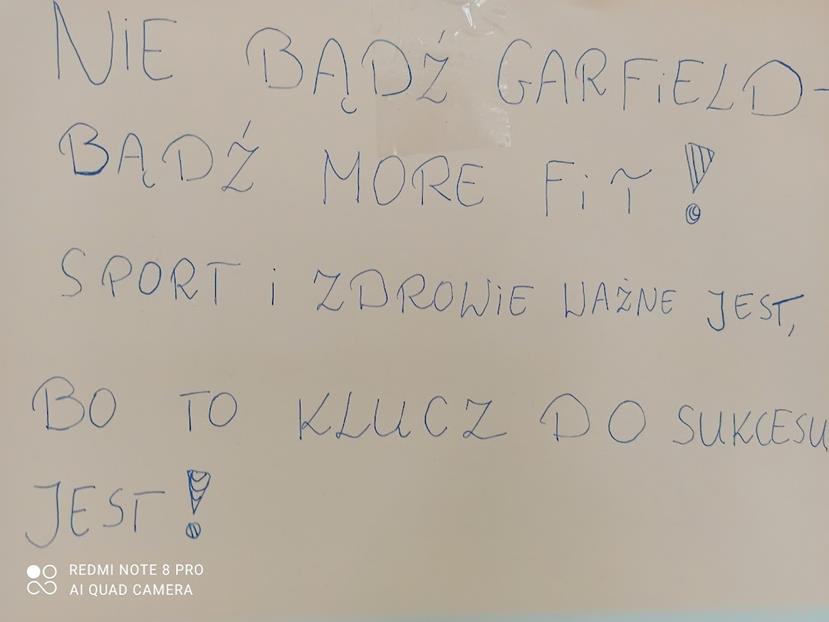 NiE BĄDŹ GARFiELD-
BĄDŹ MORE FiT!
SPORT i ZDROWiE WAŻNE JEST,
BO TO KLUCZ DO SUKCESU
JEST!
REDMI NOTE 8 PRO
AI QUAD CAMERA